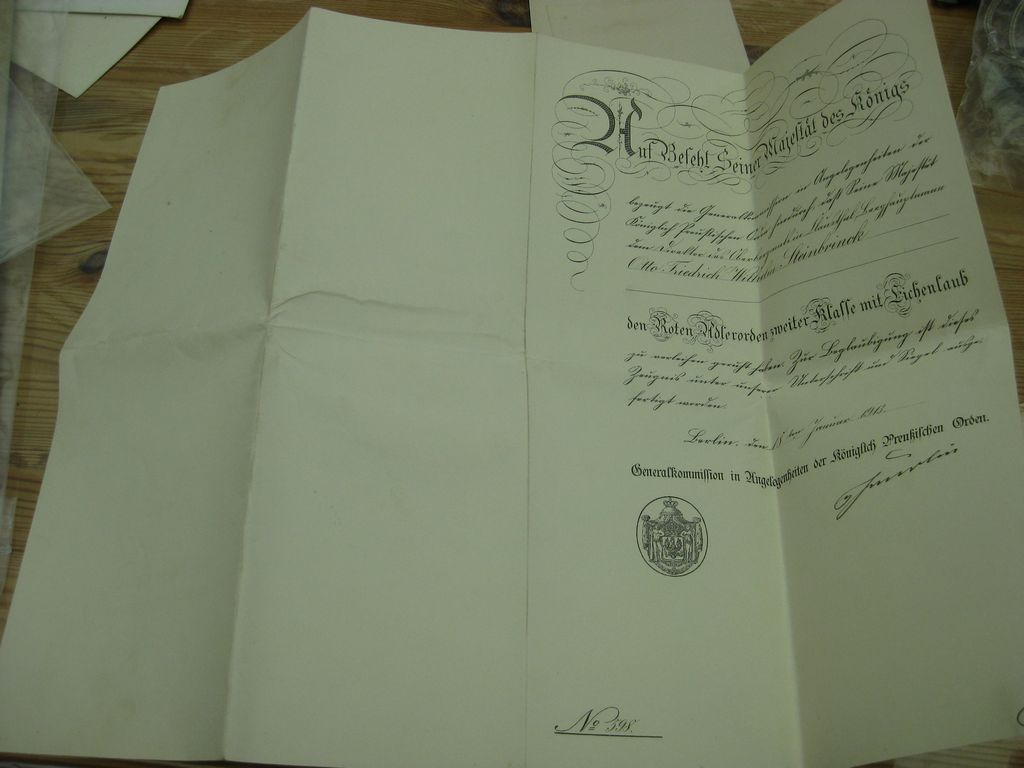 Auf Befehl Seiner Majestät des Königs
bezeugt die Generalkommission in Angelegenheiten der
Königlich Preußischen Orden hierdurch, daß Seine Majestät
dem Direktor des Oberbergamts in Berghauptmann
Otto Friedrich Wilhelm Steinbrinck
den Roten Adlerorden zweiter Klasse mit Eichenlaub
zu verleihen geruht haben. Zur Beglaubigung ist dieses
Zeugnis unter unserer Unterschrift und Siegel ausge-
fertigt worden.
Berlin, den 18ten Januar 1913.
Generalkommission in Angelegenheiten der Königlich Preußischen Orden.
No 598.